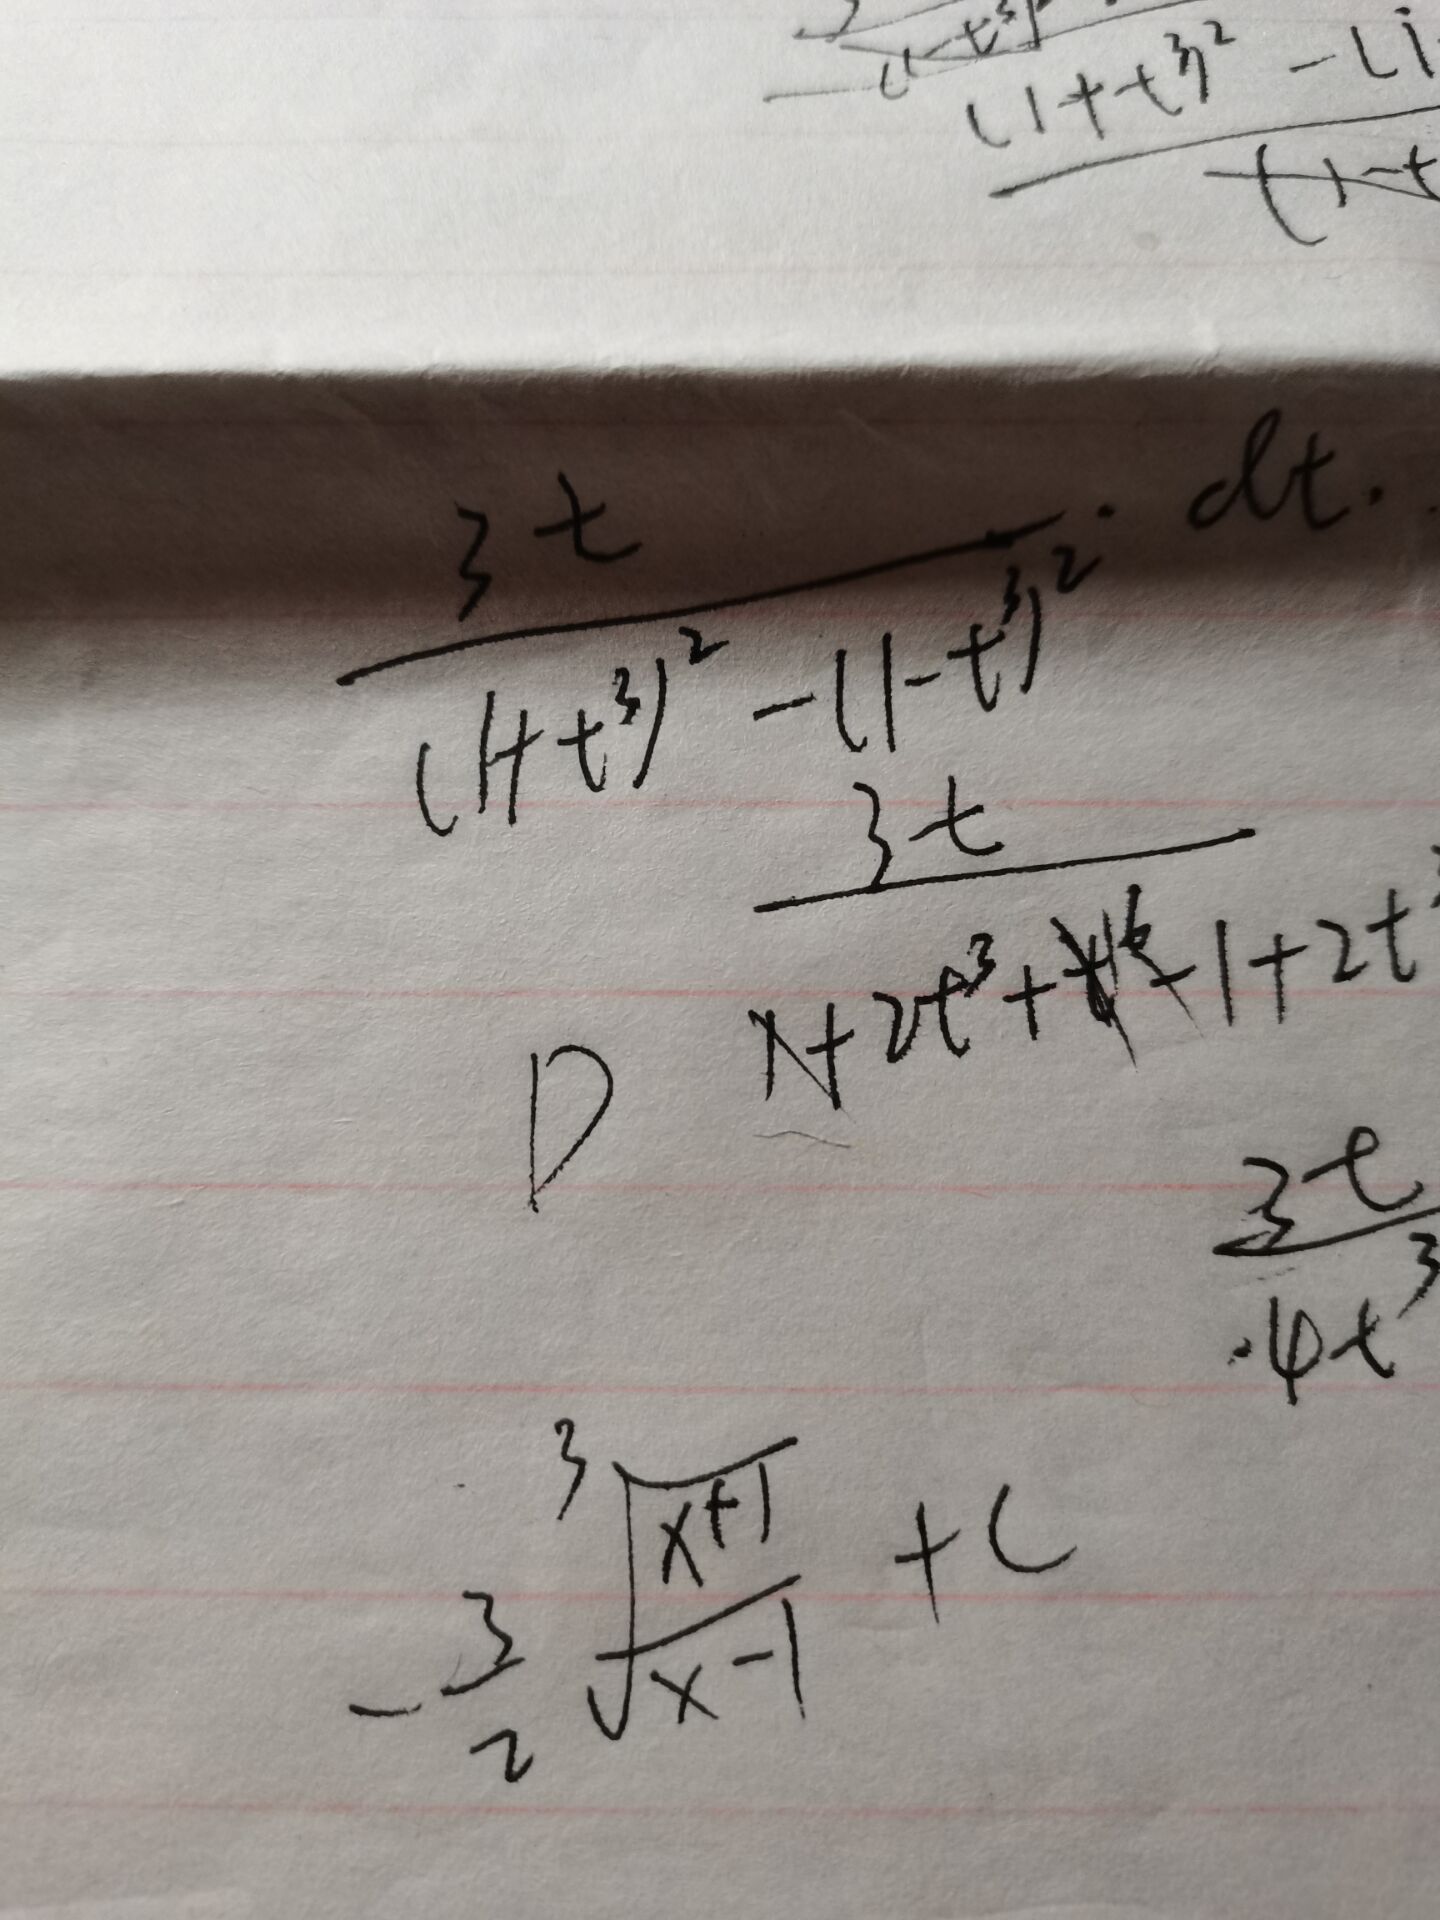 (1-t³)²
(1+t³)² - (
(1-t
3t
(1+t³)² - (1-t³)² · dt.
3t
1+2t³+t⁶-1+2t³
D
3t
4t³
-3/2 ³√((x+1)/(x-1)) + C